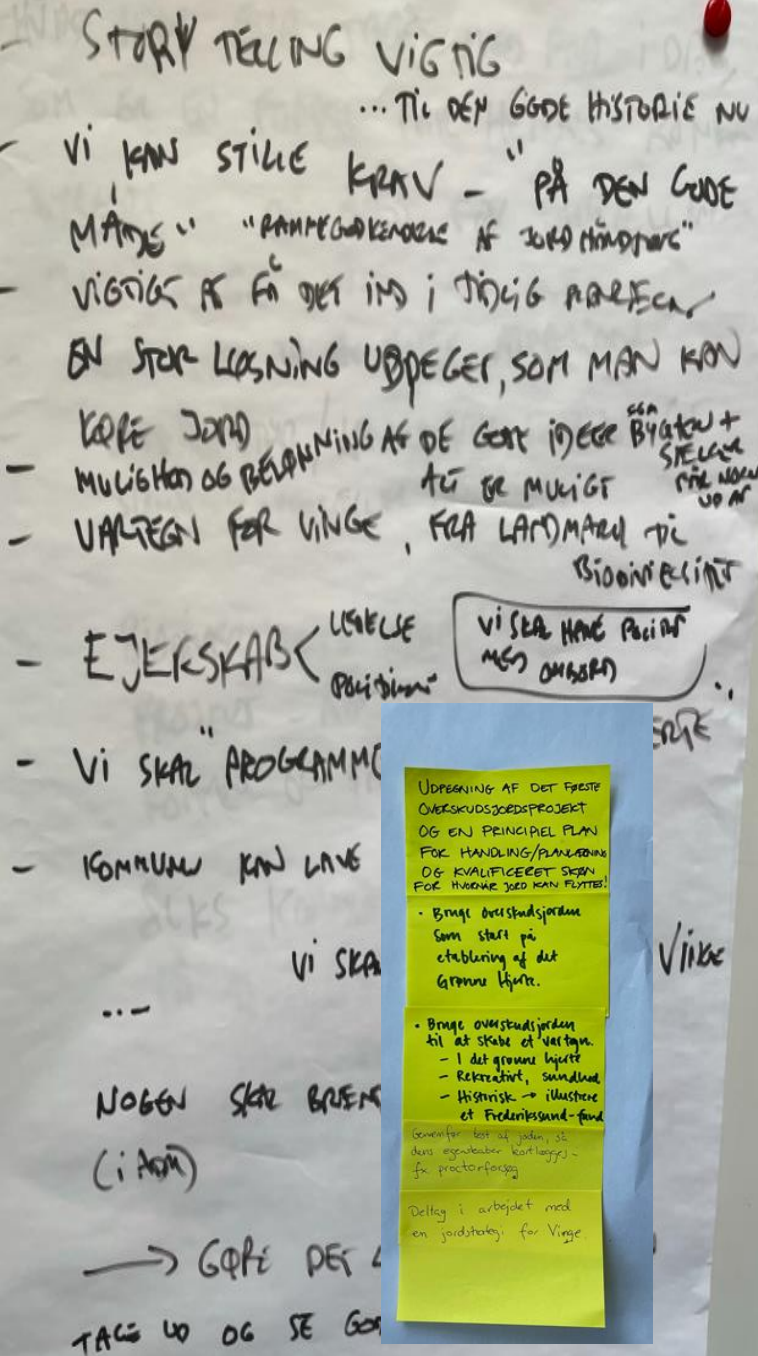 - STORY TELLING VIGTIG
... TIL DEN GODE HISTORIE NU
- VI KAN STILLE KRAV - "PÅ DEN GODE
MÅDE" "RAMMEGODKENDELSE AF JORDHÅNDTERING"
- VIGTIGT AT FÅ DET IND I TIDLIG
EN STOR LØSNING UDPEGET, SOM MAN KAN
KØRE JORD
- MULIGHED OG BELØNNING AF DE GODE IDEER SOM BYGHERREN +
ALT ER MULIGT
UD AF
- VARTEGN FOR VINGE, FRA LANDMARK TIL
BIODIVERSITET
- EJERSKAB < LEDELSE
POLITIKERE
VI SKAL HAVE POLITIK
MED OMBORD
- VI SKAL "PROGRAMME
- KOMMUNEN KAN LAVE
VI SKA
VINGE
...-
NOGEN SKAL BRÆND
(i ADM)
→ GØRE DET
TAGE UD OG SE GOD
UDPEGNING AF DET FØRSTE
OVERSKUDSJORDSPROJEKT
OG EN PRINCIPIEL PLAN
FOR HANDLING/PLANLÆGNING
OG KVALIFICERET SKØN
FOR HVORNÅR JORD KAN FLYTTES!
• Bruge overskudsjorden
som start på
etablering af det
Grønne Hjerte.
• Bruge overskudsjorden
til at skabe et vartegn.
- I det grønne hjerte
- Rekreativt, sundhed
- Historisk → illustrere
et Frederikssund-fund
Gennemfør test af jorden, så
dens egenskaber kortlægges -
fx proctorforsøg
Deltag i arbejdet med
en jordstrategi for Vinge.